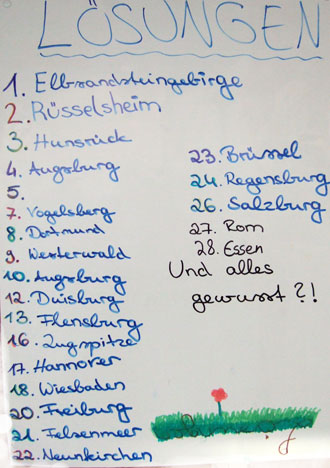 LÖSUNGEN
1. Elbsandsteingebirge
2. Rüsselsheim
3. Hunsrück
4. Augsburg
5.
7. Vogelsberg
8. Dortmund
9. Westerwald
10. Augsburg
12. Duisburg
13. Flensburg
16. Zugspitze
17. Hannover
18. Wiesbaden
20. Freiburg
21. Felsenmeer
22. Neunkirchen
23. Brüssel
24. Regensburg
26. Salzburg
27. Rom
28. Essen
Und alles
gewusst ?!